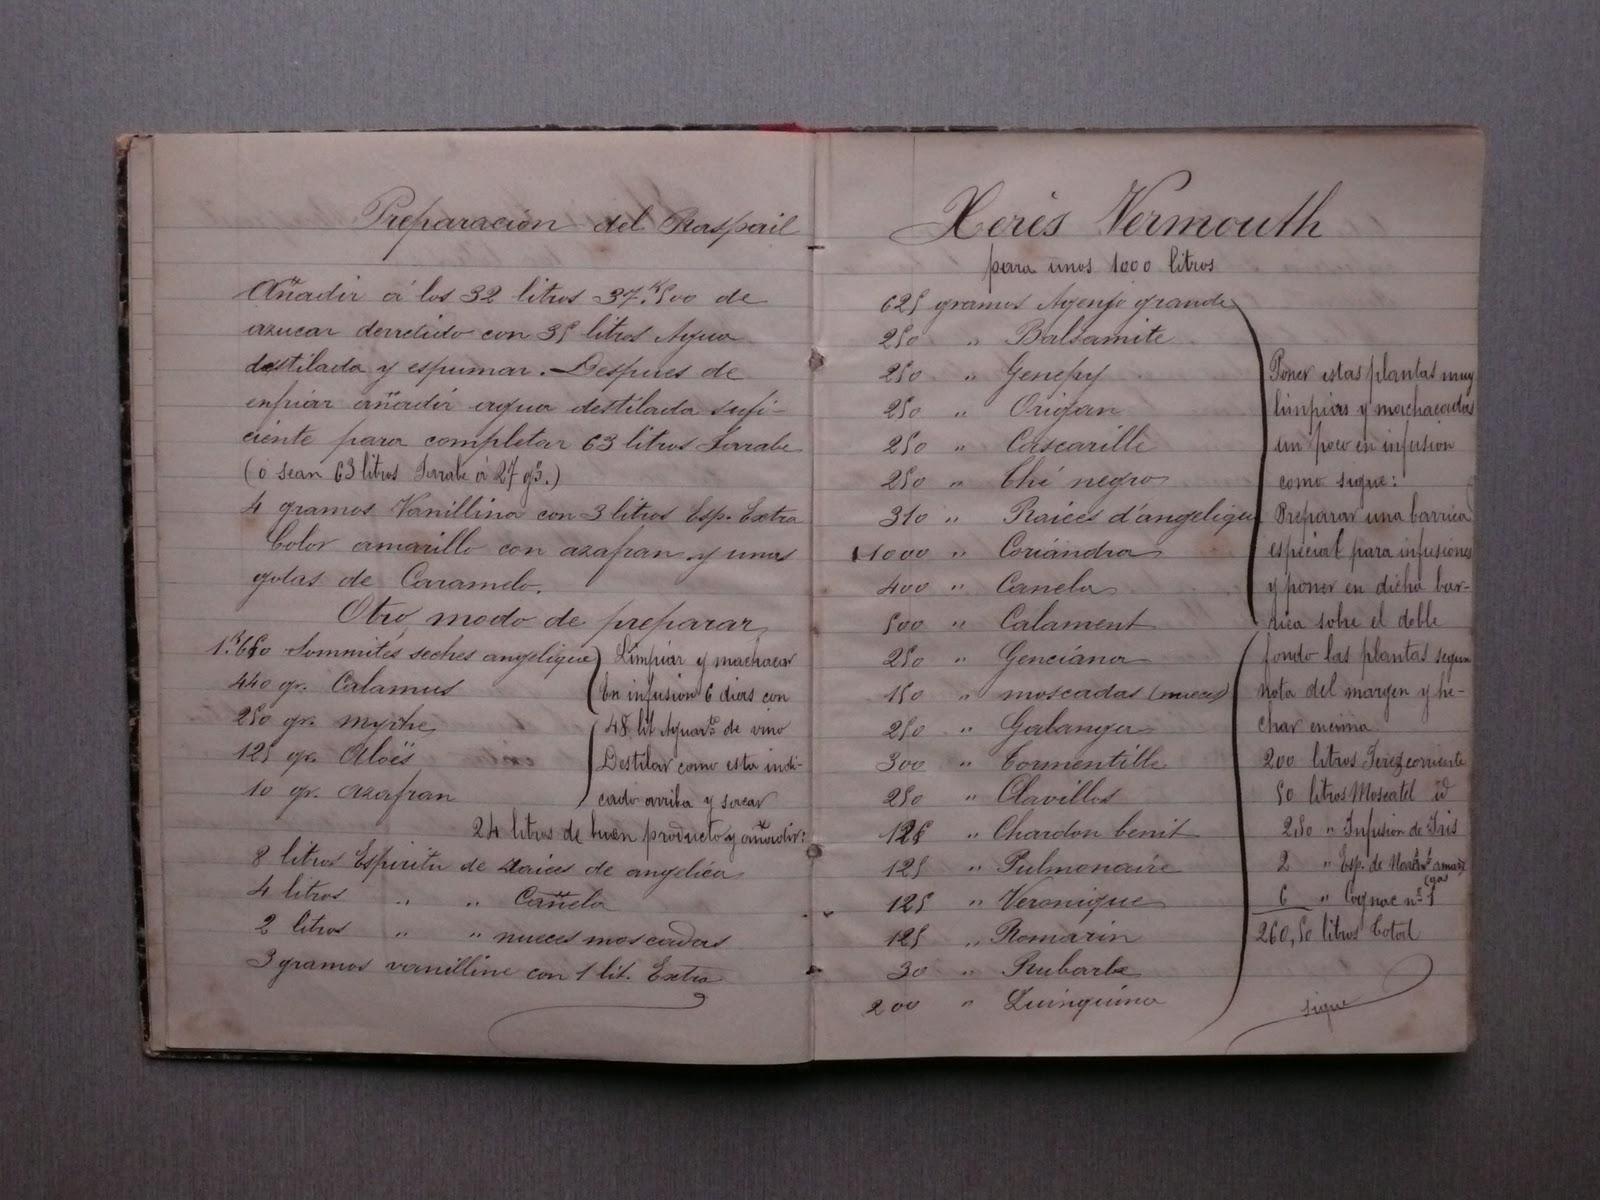 Preparacion del Raspail
Añadir á los 32 litros 37.K500 de
azucar derretido con 35 litros Agua
destilada y espumar. Despues de
enfriar añadir agua destilada sufi-
ciente para completar 63 litros Jarrabe
(ó sean 63 litros Jarrabe á 27 gs.)
4 gramos Vanillina con 3 litros Esp. Extra
Color amarillo con azafran y unas
gotas de Caramelo.
Otro modo de preparar
1.K650 Sommités seches angelique
440 gr. Calamus
250 gr. myrrhe
125 gr. Aloës
10 gr. azafran
Limpiar y machacar
En infusion 6 dias con
48 lit Aguarte de vino
Destilar como esta indi-
cado arriba y sacar
24 litros de buen producto y añadir:
8 litros Espiritu de raices de angelica
4 litros " " Cañela
2 litros " " nueces moscadas
3 gramos vanilline con 1 lit. Extra
Xerès Vermouth
para unos 1000 litros
625 gramos Agenjo grande
250 " Balsamite
250 " Genepy
250 " Origan
250 " Cascarille
250 " Thé negro
310 " Raices d'angelique
1000 " Coriandra
400 " Canela
500 " Calament
250 " Genciana
150 " moscadas (nueces)
250 " Galanga
300 " Tormentille
250 " Clavillos
125 " Chardon benit
125 " Pulmonaire
125 " Veronique
125 " Romarin
30 " Rubarbe
200 " Quinquina
Poner estas plantas muy
limpias y machacadas
un poco en infusion
como sigue:
Preparar una barrica
especial para infusiones
y poner en dicha bar-
rica sobre el doble
fondo las plantas segun
nota del margen y he-
char encima
200 litros Jerez corriente
50 litros Moscatel id
2,50 " Infusion de Iris
2 " Esp. de amargas
6 " Cognac nº 1
260,50 litros total
sigue